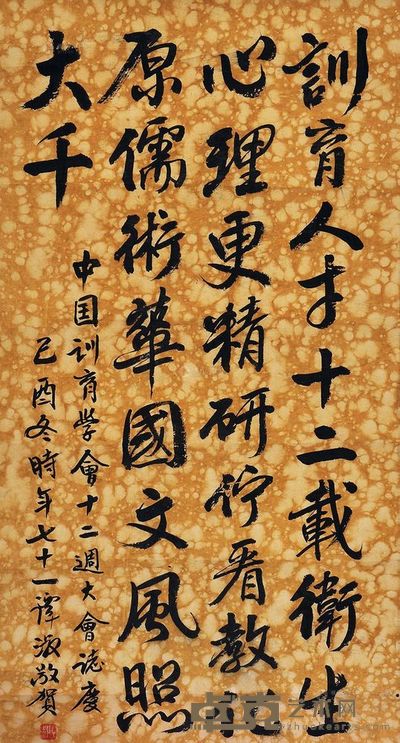 訓育人才十二載衛生
心理更精研佇看教
原儒術華國文風照
大千
中国訓育学會十二週大會誌慶
己酉冬時年七十一譚淑敬賀